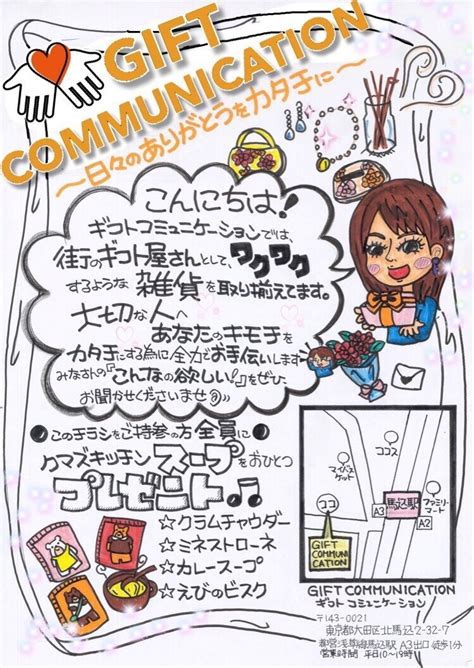 GIFT
COMMUNICATION
～日々のありがとうをカタチに～
こんにちは!
ギフトコミュニケーションでは、
街のギフト屋さんとして、ワクワク
するような 雑貨を取り揃えてます。
大切な人へ
あなたのキモチを
カタチにする為に全力でお手伝いします
みなさんの『こんなの欲しい!』をぜひ
お聞かせくださいませ
●このチラシをご持参の方全員に
クマズキッチン スープをおひとつ
プレゼント♫
☆クラムチャウダー
☆ミネストローネ
☆カレースープ
☆えびのビスク
ココス
マイバスケット
ココ
馬込駅
ファミリーマート
A3
A2
GIFT
COMMUNICATION
GIFT COMMUNICATION
ギフト コミュニケーション
〒143-0021
東京都大田区北馬込2-32-7
都営浅草線馬込駅 A3出口 徒歩1分
営業時間 平日10～19時